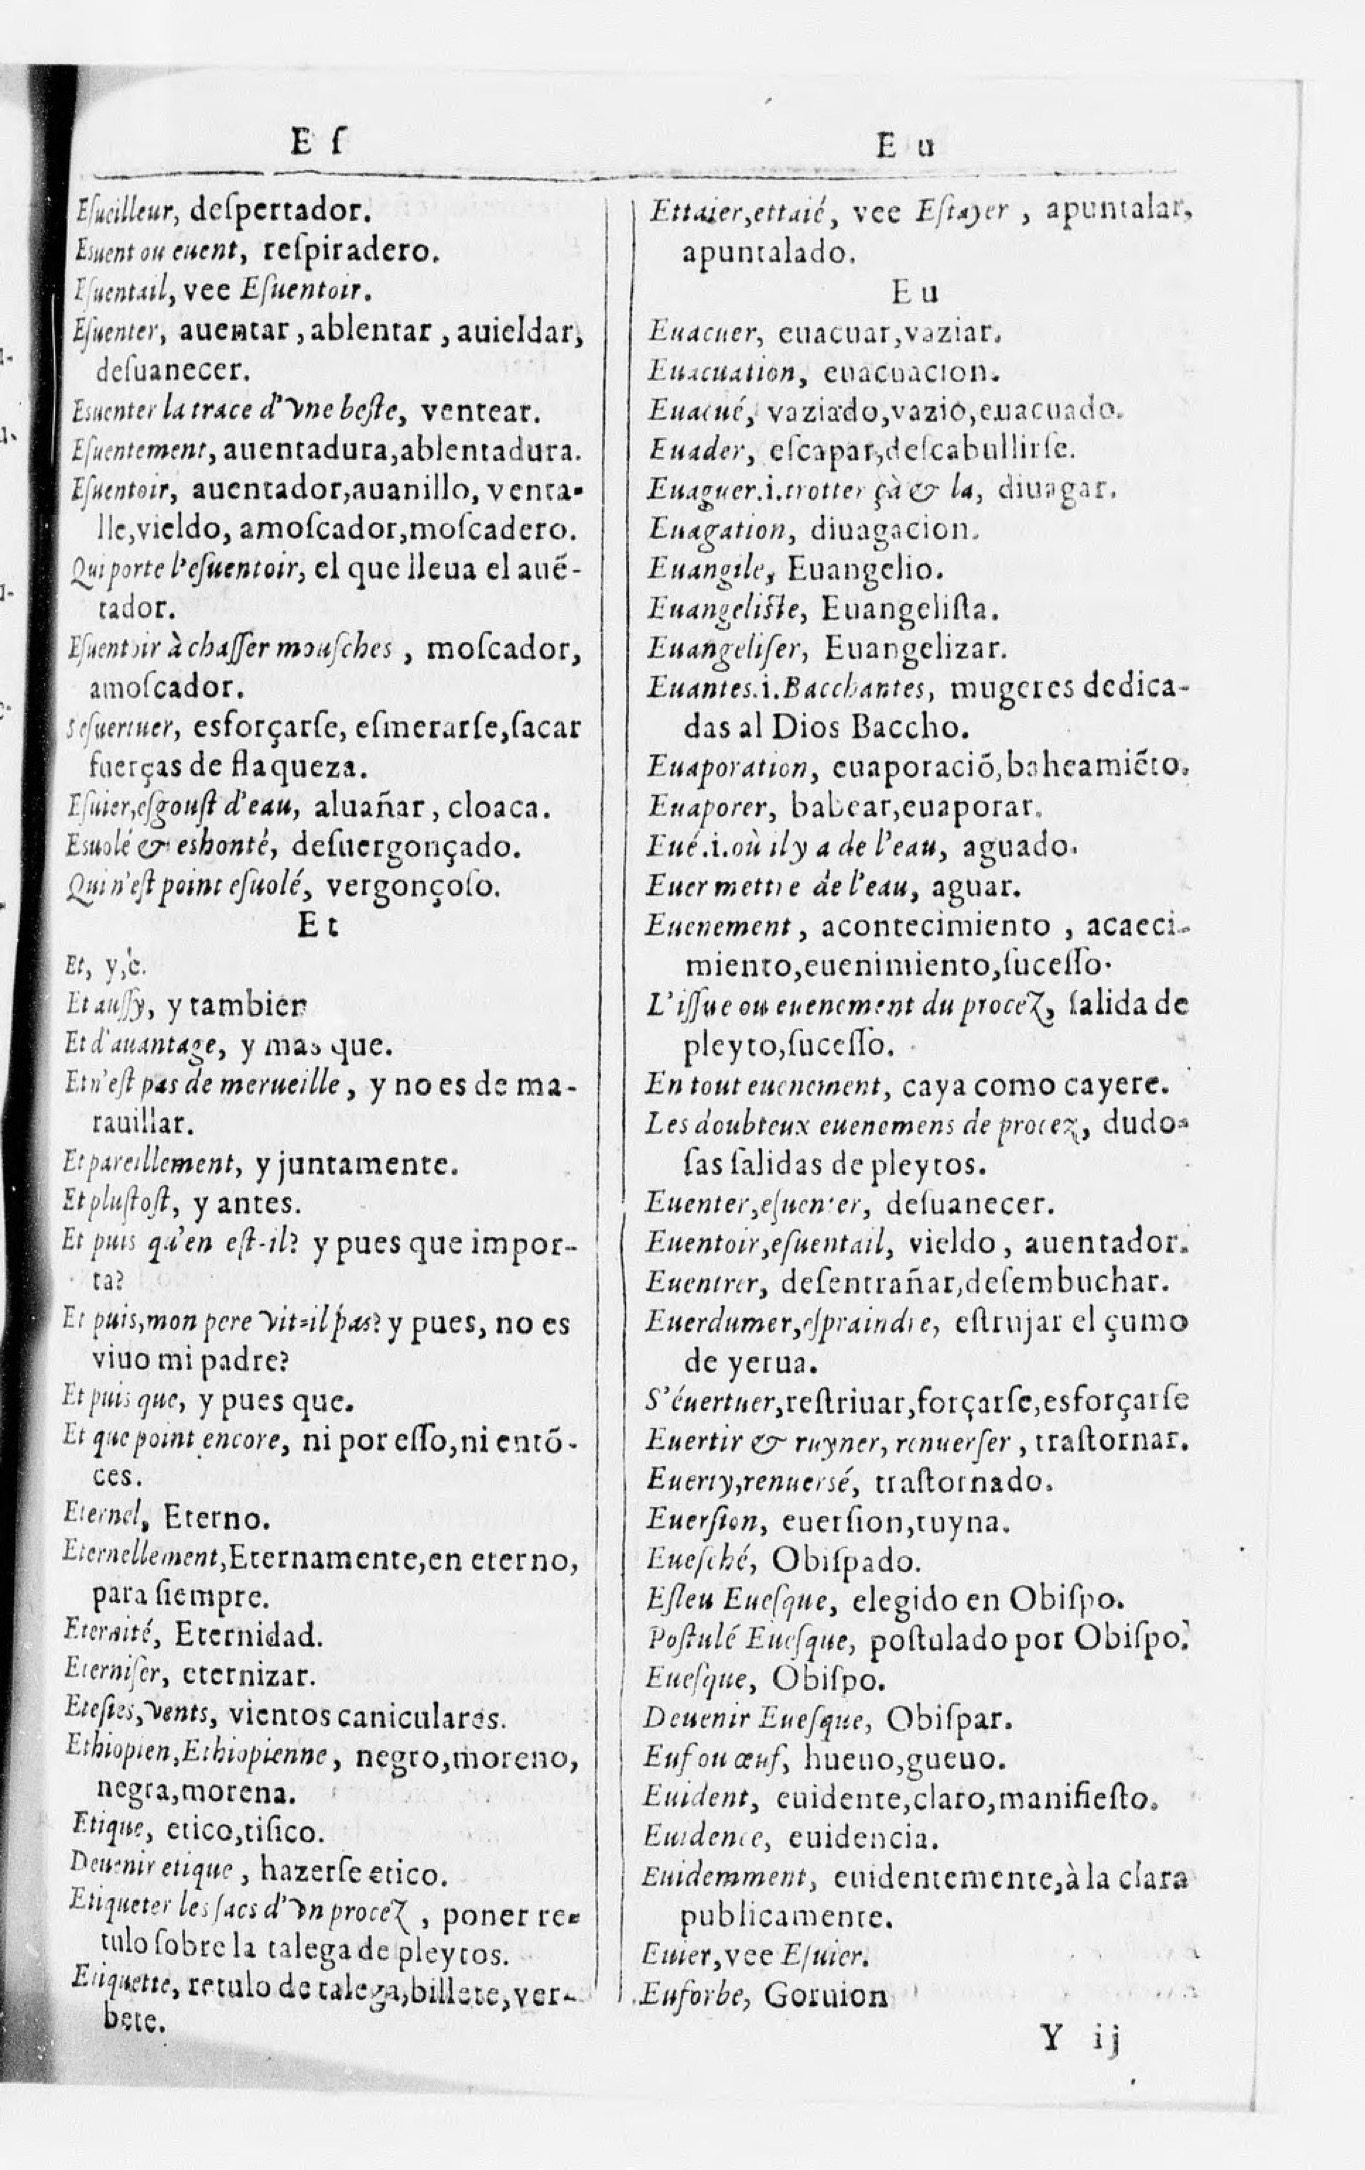 E ſ
Eſueilleur, deſpertador.
Esuent ou euent, reſpiradero.
Eſuentail, vee Eſuentoir.
Eſuenter, auentar, ablentar, auieldar,
deſuanecer.
Esuenter la trace d'vne beſte, ventear.
Eſuentement, auentadura, ablentadura.
Eſuentoir, auentador, auanillo, venta-
lle, vieldo, amoſcador, moſcadero.
Qui porte l'eſuentoir, el que lleua el auẽ-
tador.
Eſuentoir à chaſſer mouſches, moſcador,
amoſcador.
S'eſuertuer, esforçarſe, eſmerarſe, ſacar
fuerças de flaqueza.
Eſuier, eſgouſt d'eau, aluañar, cloaca.
Esuolé & eshonté, deſuergonçado.
Qui n'eſt point eſuolé, vergonçoſo.
E t
Et, y, è.
Et auſſy, y tambien
Et d'auantage, y mas que.
Et n'eſt pas de merueille, y no es de ma-
rauillar.
Et pareillement, y juntamente.
Et pluſtoſt, y antes.
Et puis qu'en eſt-il? y pues que impor-
ta?
Et puis, mon pere vit-il pas? y pues, no es
viuo mi padre?
Et puis que, y pues que.
Et que point encore, ni por eſſo, ni entõ-
ces.
Eternel, Eterno.
Eternellement, Eternamente, en eterno,
para ſiempre.
Eternité, Eternidad.
Eterniſer, eternizar.
Eteſies, vents, vientos caniculares.
Ethiopien, Ethiopienne, negro, moreno,
negra, morena.
Etique, etico, tiſico.
Deuenir etique, hazerſe etico.
Etiqueter les ſacs d'vn procez, poner re-
tulo ſobre la talega de pleytos.
Etiquette, retulo de talega, billete, ver-
bete.
E u
Ettaier, ettaié, vee Eſtayer, apuntalar,
apuntalado.
E u
Euacuer, euacuar, vaziar.
Euacuation, euacuacion.
Euacué, vaziado, vazio, euacuado.
Euader, eſcapar, deſcabullirſe.
Euaguer .i. trotter çà & la, diuagar.
Euagation, diuagacion.
Euangile, Euangelio.
Euangeliſte, Euangeliſta.
Euangeliſer, Euangelizar.
Euantes .i. Bacchantes, mugeres dedica-
das al Dios Baccho.
Euaporation, euaporaciõ, baheamiẽto.
Euaporer, babear, euaporar.
Eué .i. où il y a de l'eau, aguado.
Euer mettre de l'eau, aguar.
Euenement, acontecimiento, acaeci-
miento, euenimiento, ſuceſſo.
L'iſſue ou euenement du procez, ſalida de
pleyto, ſuceſſo.
En tout euenement, caya como cayere.
Les doubteux euenemens de procez, dudo-
ſas ſalidas de pleytos.
Euenter, eſuenter, deſuanecer.
Euentoir, eſuentail, vieldo, auentador.
Euentrer, deſentrañar, deſembuchar.
Euerdumer, eſpraindre, eſtrujar el çumo
de yerua.
S'éuertuer, reſtriuar, forçarſe, esforçarſe
Euertir & ruyner, renuerſer, traſtornar.
Euerty, renuersé, traſtornado.
Euerſion, euerſion, ruyna.
Eueſché, Obiſpado.
Eſleu Eueſque, elegido en Obiſpo.
Poſtulé Eueſque, poſtulado por Obiſpo.
Eueſque, Obiſpo.
Deuenir Eueſque, Obiſpar.
Euf ou œuf, hueuo, gueuo.
Euident, euidente, claro, manifieſto.
Euidence, euidencia.
Euidemment, euidentemente, à la clara
publicamente.
Euier, vee Eſuier.
Euforbe, Goruion
Y ij